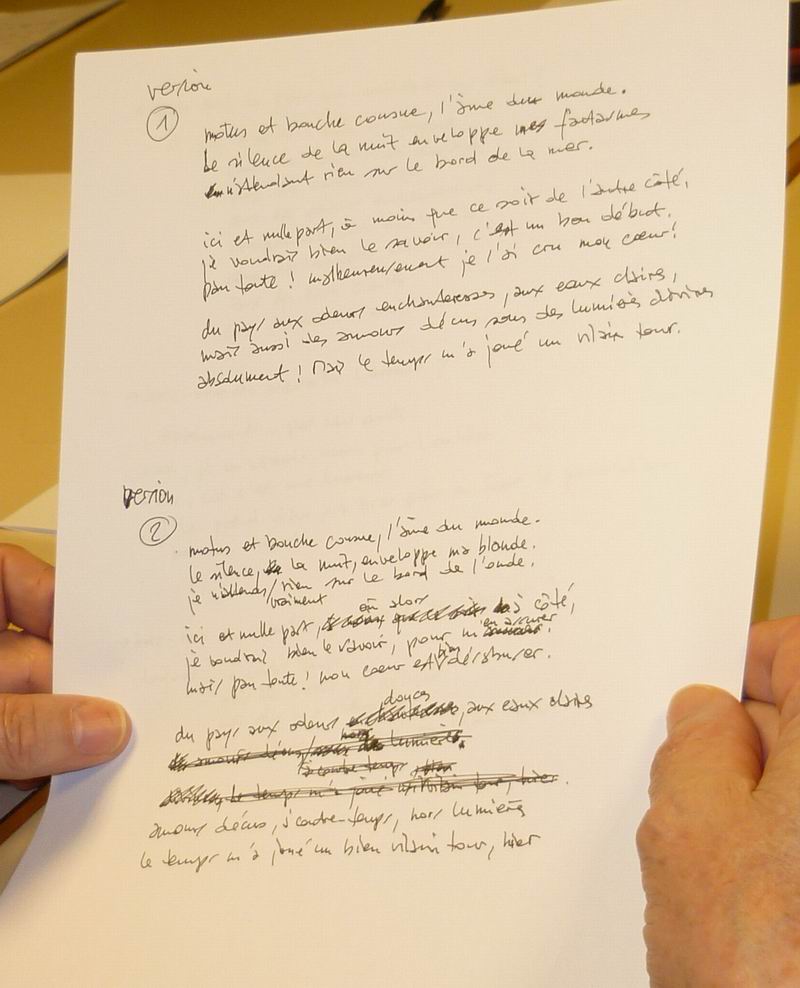 version
1
motus et bouche cousue, l'âme du monde.
Le silence de la nuit enveloppe mes fantasmes
n'attendant rien sur le bord de la mer.
ici et nulle part, à moins que ce soit de l'autre côté,
je voudrais bien le savoir, c'est un bon début.
pan toute ! malheureusement je l'ai cru mon cœur !
du pays aux odeurs enchanteresses, aux eaux claires,
mais aussi des amours déçus sous des lumières divines
absolument ! Mais le temps m'a joué un vilain tour.
version
2
motus et bouche cousue, l'âme du monde.
le silence, la nuit, enveloppe ma blonde.
je n'attends rien sur le bord de l'onde.
vraiment
ou alors
ici et nulle part, à côté,
en assurer
je voudrais bien le savoir, pour m'
bien
mais pan toute ! mon cœur est
douces
du pays aux odeurs aux eaux claires
hors
amours déçus lumières
à contre temps
le temps m'a joué un vilain tour, hier.
amours déçus, à contre-temps, hors lumières
le temps m'a joué un bien vilain tour, hier